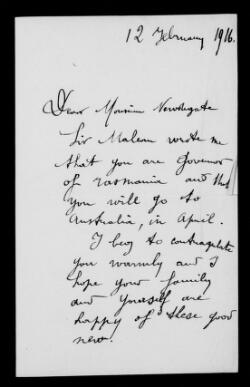 12 February 1916.
Dear Monsieur Newdegate
Sir Malean wrote me
that you are Governor
of Tasmania and that
you will go to
Australia, in April.
I beg to contragulate
you warmly and I
hope your family
and yourself are
happy of these good
new.